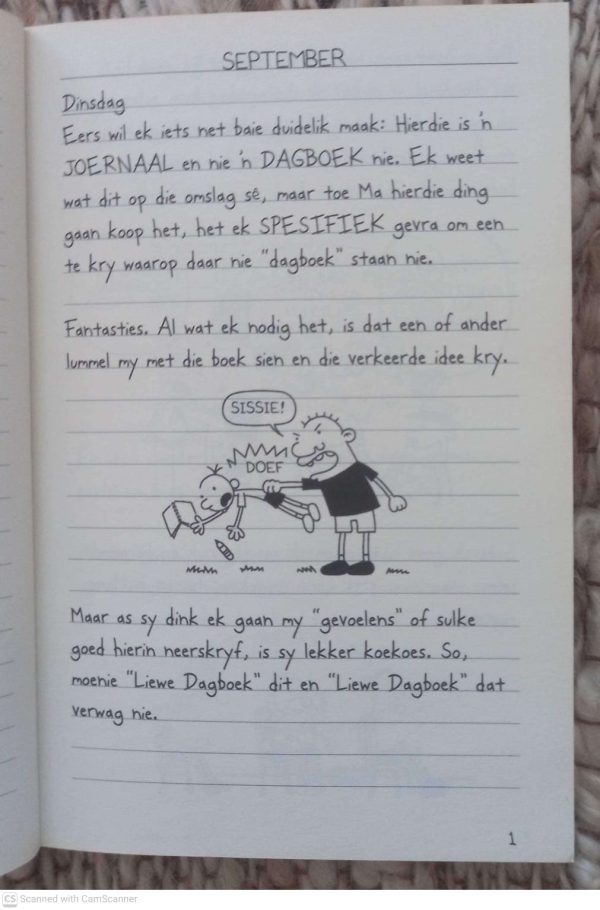 SEPTEMBER
Dinsdag
Eers wil ek iets net baie duidelik maak: Hierdie is 'n
JOERNAAL en nie 'n DAGBOEK nie. Ek weet
wat dit op die omslag sê, maar toe Ma hierdie ding
gaan koop het, het ek SPESIFIEK gevra om een
te kry waarop daar nie "dagboek" staan nie.
Fantasties. Al wat ek nodig het, is dat een of ander
lummel my met die boek sien en die verkeerde idee kry.
SISSIE!
DOEF
Maar as sy dink ek gaan my "gevoelens" of sulke
goed hierin neerskryf, is sy lekker koekoes. So,
moenie "Liewe Dagboek" dit en "Liewe Dagboek" dat
verwag nie.
1
CS Scanned with CamScanner